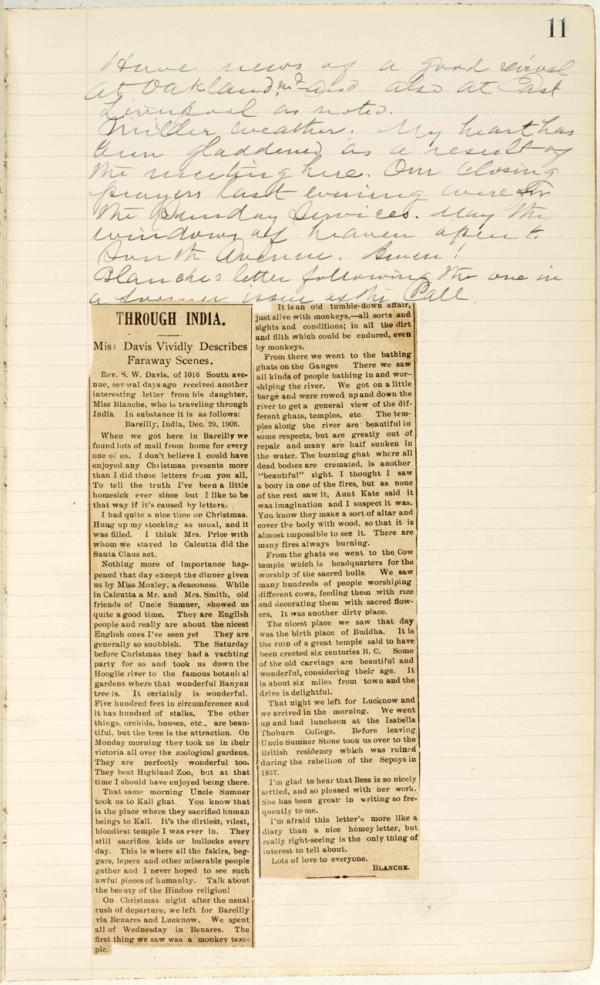 11
Have news of a good revival
at Oakland, Md and also at East
Liverpool as noted.
Milder weather. My heart has
been gladdened as a result of
the meeting here. Our closing
prayers last evening were for
the Sunday Services. May the
windows of heaven open to
South Avenue. Amen!
Blanche's letter following the one in
a former issue is this Call
THROUGH INDIA.
Mis: Davis Vividly Describes
Faraway Scenes.
Rev. S. W. Davis, of 1016 South ave-
nue, several days ago received another
interesting letter from his daughter,
Miss Blanche, who is traveling through
India In substance it is as follows:
Bareilly, India, Dec. 29, 1906.
When we got here in Bareilly we
found lots of mail from home for every
one of us. I don't believe I could have
enjoyed any Christmas presents more
than I did those letters from you all.
To tell the truth I've been a little
homesick ever since but I like to be
that way if it's caused by letters.
I had quite a nice time on Christmas.
Hung up my stocking as usual, and it
was filled. I think Mrs. Price with
whom we stayed in Calcutta did the
Santa Claus act.
Nothing more of importance hap-
pened that day except the dinner given
us by Miss Moxley, a deaconess. While
in Calcutta a Mr. and Mrs. Smith, old
friends of Uncle Sumner, showed us
quite a good time. They are English
people and really are about the nicest
English ones I've seen yet They are
generally so snobbish. The Saturday
before Christmas they had a yachting
party for us and took us down the
Hooglie river to the famous botanical
gardens where that wonderful Banyan
tree is. It certainly is wonderful.
Five hundred feet in circumference and
it has hundred of stalks. The other
things, orchids, houses, etc., are beau-
tiful, but the tree is the attraction. On
Monday morning they took us in their
victoria all over the zoological gardens.
They are perfectly wonderful too.
They beat Highland Zoo, but at that
time I should have enjoyed being there.
That same morning Uncle Sumner
took us to Kali ghat. You know that
is the place where they sacrificed human
beings to Kali. It's the dirtiest, vilest,
bloodiest temple I was ever in. They
still sacrifice kids or bullocks every
day. This is where all the fakirs, beg-
gars, lepers and other miserable people
gather and I never hoped to see such
awful pieces of humanity. Talk about
the beauty of the Hindoo religion!
On Christmas night after the usual
rush of departure, we left for Bareilly
via Benares and Lucknow. We spent
all of Wednesday in Benares. The
first thing we saw was a monkey tem-
ple.
It is an old tumble-down affair,
just alive with monkeys,—all sorts and
sights and conditions; in all the dirt
and filth which could be endured, even
by monkeys.
From there we went to the bathing
ghats on the Ganges There we saw
all kinds of people bathing in and wor-
shiping the river. We got on a little
barge and were rowed up and down the
river to get a general view of the dif-
ferent ghats, temples, etc. The tem-
ples along the river are beautiful in
some respects, but are greatly out of
repair and many are half sunken in
the water. The burning ghat where all
dead bodies are cremated, is another
"beautiful" sight. I thought I saw
a body in one of the fires, but as none
of the rest saw it, Aunt Kate said it
was imagination and I suspect it was.
You know they make a sort of altar and
cover the body with wood, so that it is
almost impossible to see it. There are
many fires always burning.
From the ghats we went to the Cow
temple which is headquarters for the
worship of the sacred bulls. We saw
many hundreds of people worshiping
different cows, feeding them with rice
and decorating them with sacred flow-
ers. It was another dirty place.
The nicest place we saw that day
was the birth place of Buddha. It is
the ruin of a great temple said to have
been erected six centuries B. C. Some
of the old carvings are beautiful and
wonderful, considering their age. It
is about six miles from town and the
drive is delightful.
That night we left for Lucknow and
we arrived in the morning. We went
up and had luncheon at the Isabella
Thoburn College. Before leaving
Uncle Sumner Stone took us over to the
British residency which was ruined
during the rebellion of the Sepoys in
1857.
I'm glad to hear that Bess is so nicely
settled, and so pleased with her work.
She has been great in writing so fre-
quently to me.
I'm afraid this letter's more like a
diary than a nice homey letter, but
really right-seeing is the only thing of
interest to tell about.
Lots of love to everyone.
BLANCHE.